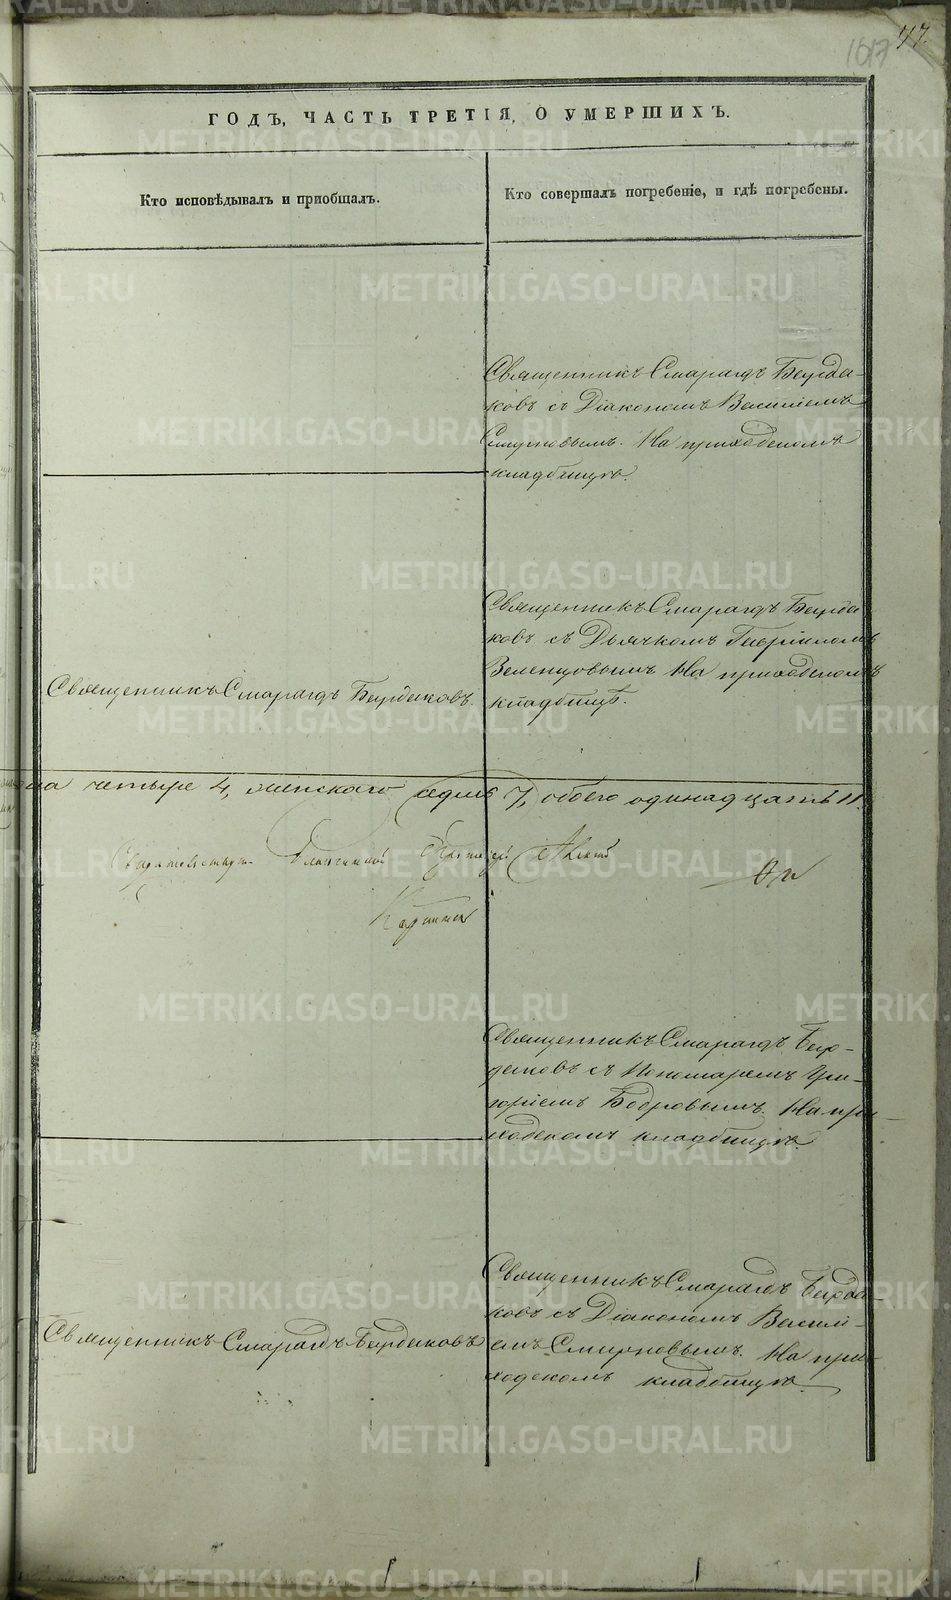 77.
1017
ГОДЪ, ЧАСТЬ ТРЕТІЯ, О УМЕРШИХЪ.
Кто исповѣдывалъ и приобщалъ.
Кто совершалъ погребеніе, и гдѣ погребены.
Священникъ Смарагдъ Бурда-
ковъ съ Діакономъ Василіемъ
Смирновымъ. На приходскомъ
кладбищѣ.
Священникъ Смарагдъ Бурдаковъ.
Священникъ Смарагдъ Бурда
ковъ съ Дьячкомъ Гавріиломъ
Зеленцовымъ На приходскомъ
кладбищѣ.
на четыре 4, женскаго седмь 7, обоего одинадцать 11.
Свидѣтельствую Благочинный
Священникъ Смарагдъ Бур-
даковъ съ Пономаремъ Гри-
горіемъ Бобровымъ. На при-
ходскомъ кладбищѣ
Священникъ Смарагдъ Бурдаковъ
Священникъ Смарагдъ Бурда-
ковъ съ Діакономъ Василі-
емъ Смирновымъ. На при-
ходскомъ кладбищѣ.
METRIKI.GASO-URAL.RU